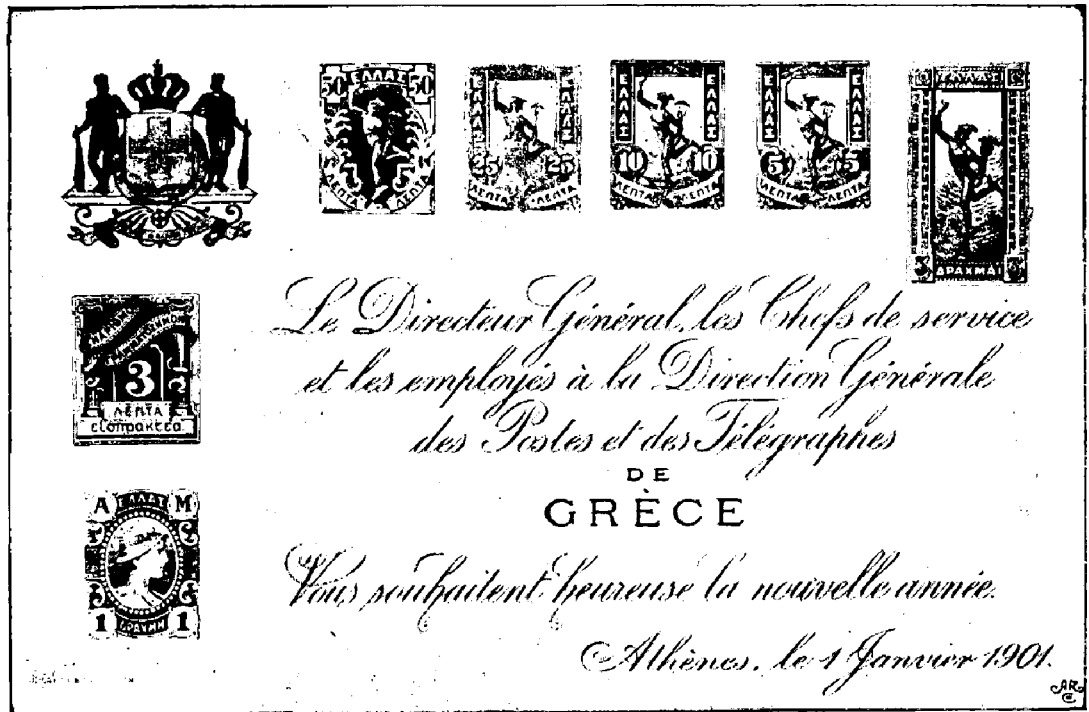 50 ΕΛΛΑΣ 50
ΛΕΠΤΑ ΛΕΠΤΑ
ΕΛΛΑΣ ΕΛΛΑΣ
25 25
ΛΕΠΤΑ ΛΕΠΤΑ
ΕΛΛΑΣ ΕΛΛΑΣ
10 10
ΛΕΠΤΑ ΛΕΠΤΑ
ΕΛΛΑΣ ΕΛΛΑΣ
5 5
ΛΕΠΤΑ ΛΕΠΤΑ
ΕΛΛΑΣ
ΔΡΑΧΜΑΙ
3
ΛΕΠΤΑ
εισπρακτεα
Α ΕΛΛΑΣ Μ
1 ΔΡΑΧΜΗ 1
Le Directeur Général, les Chefs de service
et les employés à la Direction Générale
des Postes et des Télégraphes
DE
GRÈCE
Vous souhaitent heureuse la nouvelle année.
Athènes, le 1 Janvier 1901.